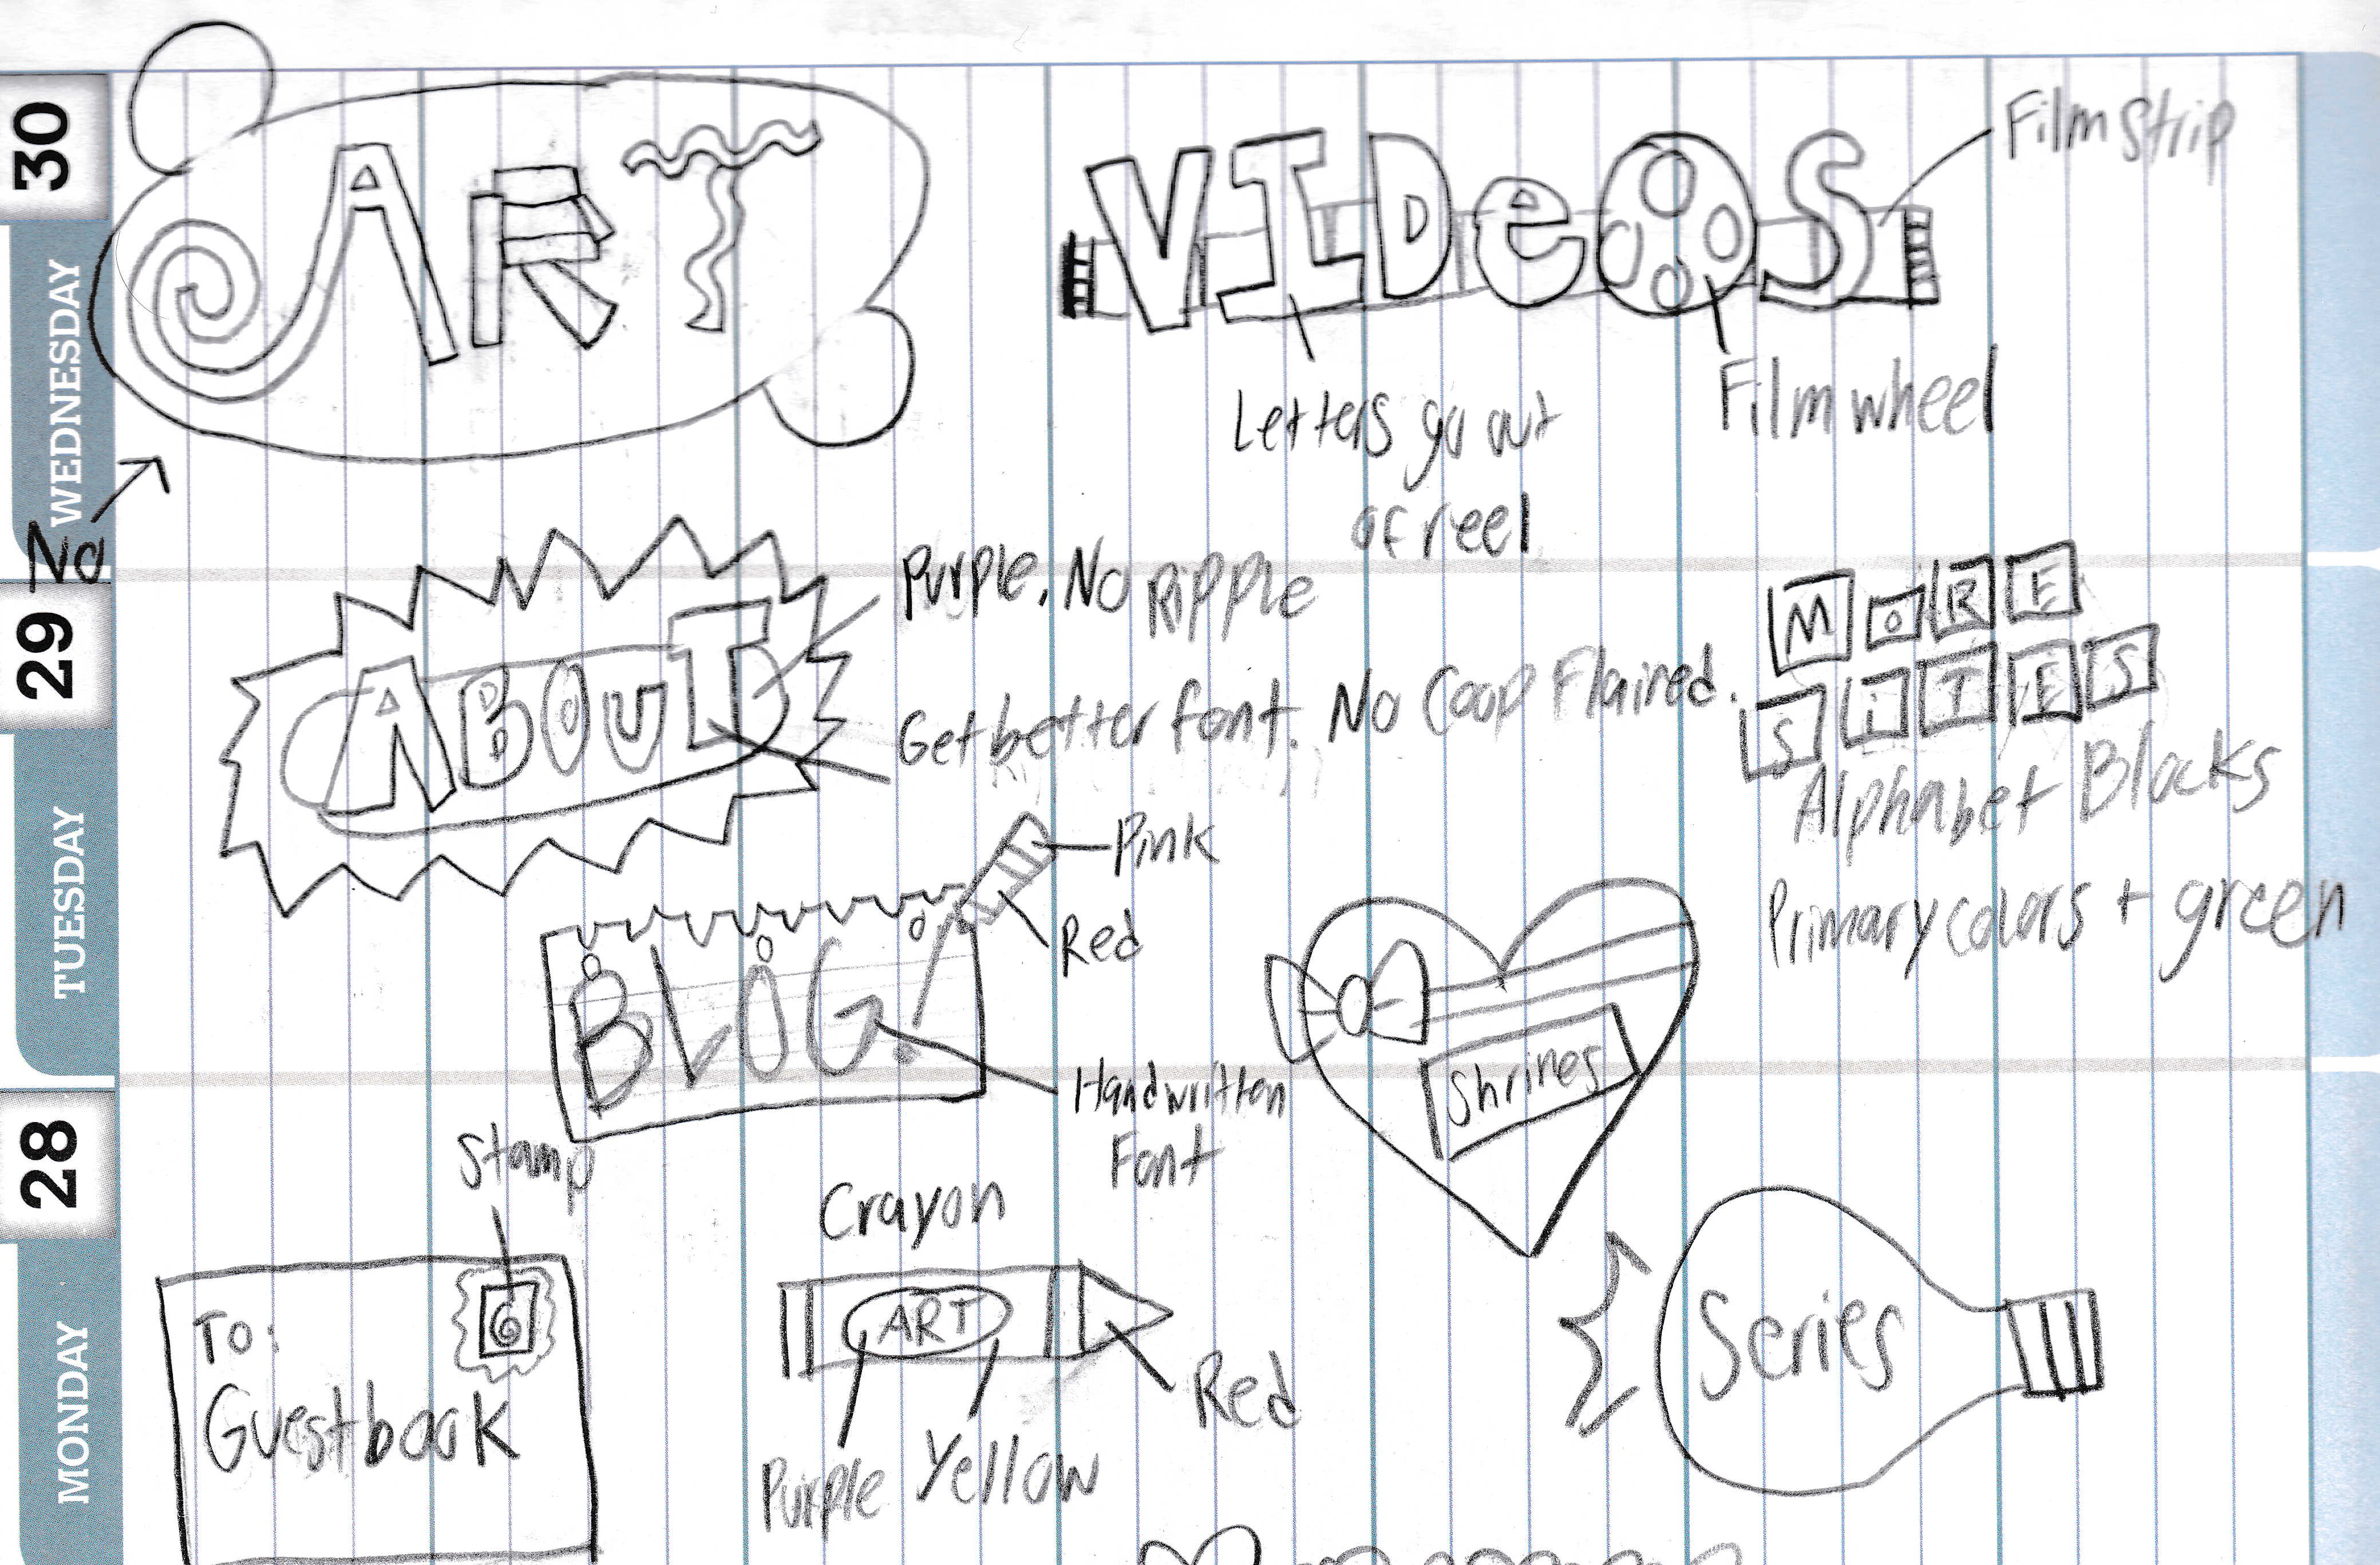 30
WEDNESDAY
ART
No
VIDeOS
Film Strip
Film wheel
Letters go out
of reel
29
TUESDAY
ABOUT
Purple. No Ripple
Get better font. No Coop Flaired.
MoRE
SiTES
Alphabet Blocks
Primary colors + green
Pink
Red
BLOG!
Handwritten
Font
Shrines
28
MONDAY
Stamp
To:
Guestbook
Crayon
ART
Purple
Yellow
Red
Series